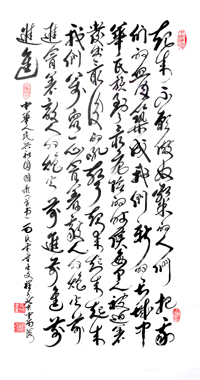 起来不愿做奴隶的人们把我
们的血肉筑成我们新的长城中
华民族到了最危险的时候每个人被迫着
发出最后的吼声起来起来起来
我们万众一心冒着敌人的炮火前
进冒着敌人的炮火前进前进前
进进
中华人民共和国国歌